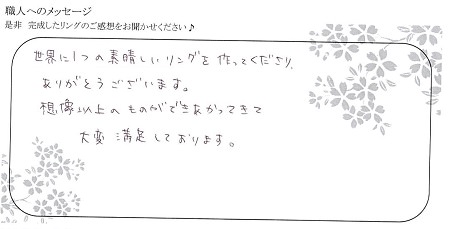 職人へのメッセージ
是非 完成したリングのご感想をお聞かせください♪
世界に1つの素晴しいリングを作ってくださり、
ありがとうございます。
想像以上のものができあがってきて
大変満足しております。